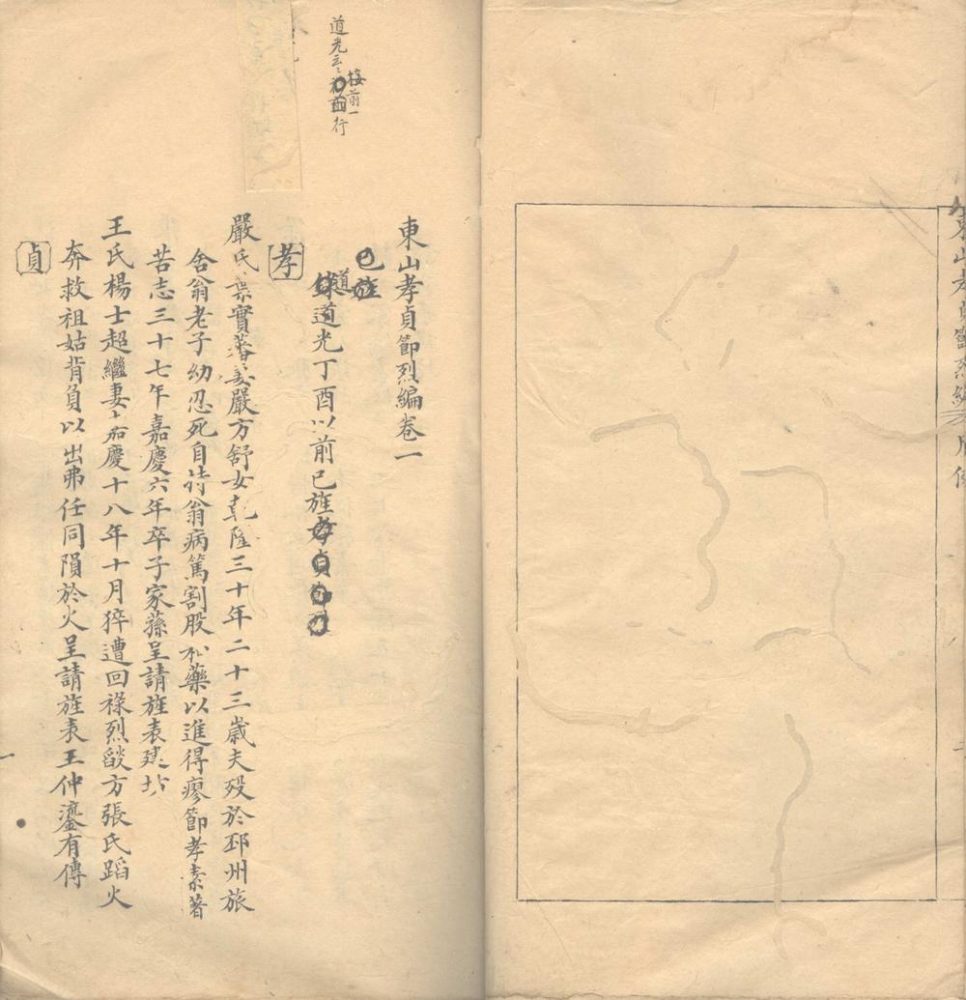 東山孝貞節烈編
道光
接前一
行
東山孝貞節烈編卷一
已旌
道
道光丁酉以前已旌孝貞
孝
嚴氏嚴方舒女乾隆三十年二十三歲夫歿於邳州旅
舍翁老子幼忍死自持翁病篤割股和藥以進得瘳節孝素著
苦志三十七年嘉慶六年卒子家蓀呈請旌表建坊
王氏楊士超繼妻嘉慶十八年十月猝遭回祿烈燄方張氏蹈火
奔救祖姑背負以出弗任同隕於火呈請旌表王仲鎏有傳
貞
一